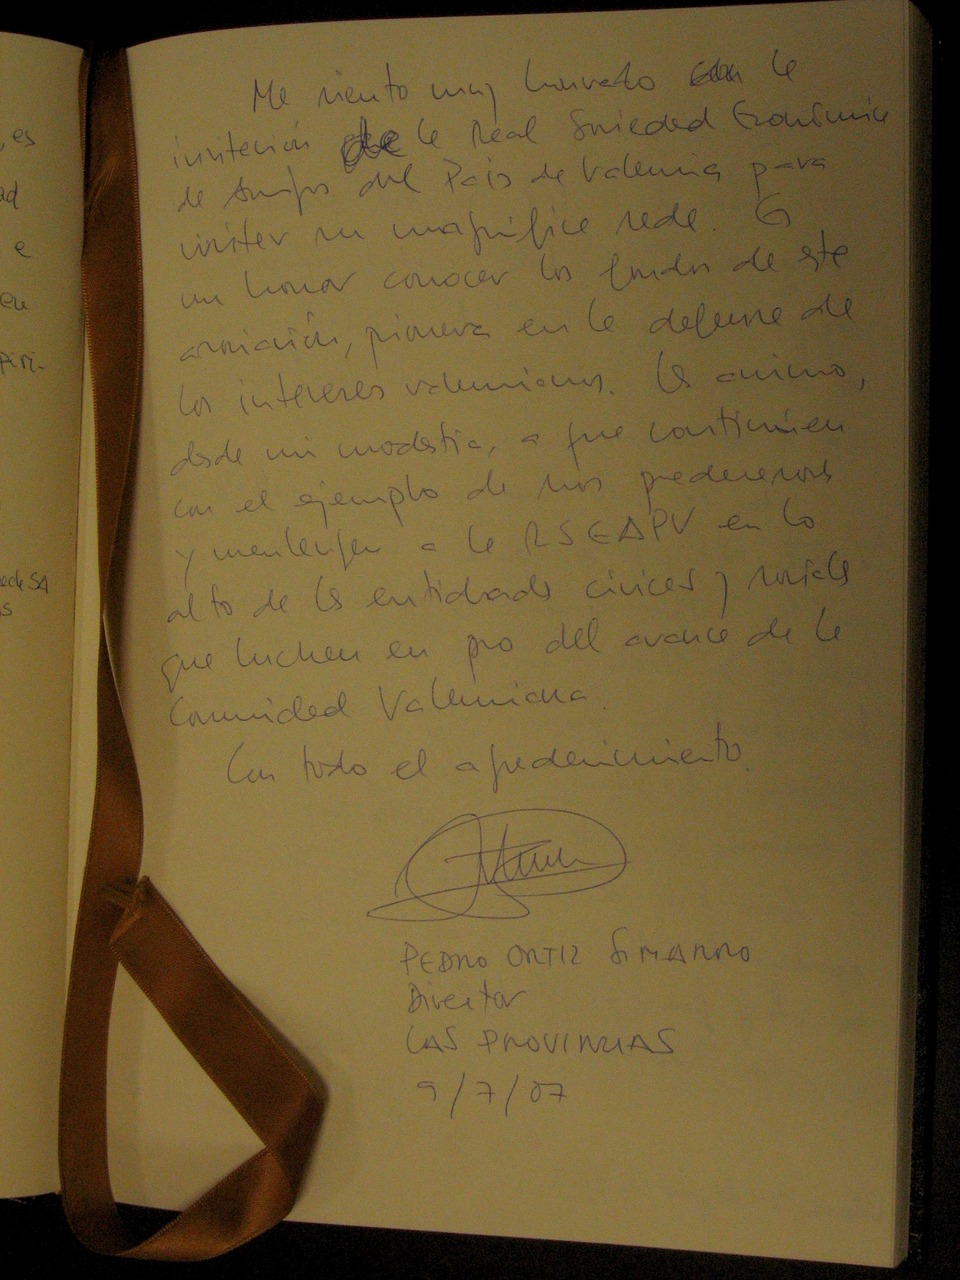 Me siento muy honrado con la
invitación de la Real Sociedad Económica
de Amigos del País de Valencia para
visitar su magnífica sede. Es
un honor conocer los fondos de esta
asociación, pionera en la defensa de
los intereses valencianos. Les animo,
desde mi modestia, a que continúen
con el ejemplo de sus predecesores
y mantengan a la RSEAPV en lo
alto de las entidades cívicas y sociales
que luchan en pro del avance de la
Comunidad Valenciana.
Con todo el agradecimiento.
PEDRO ORTIZ SIMARRO
Director
LAS PROVINCIAS
9/7/07